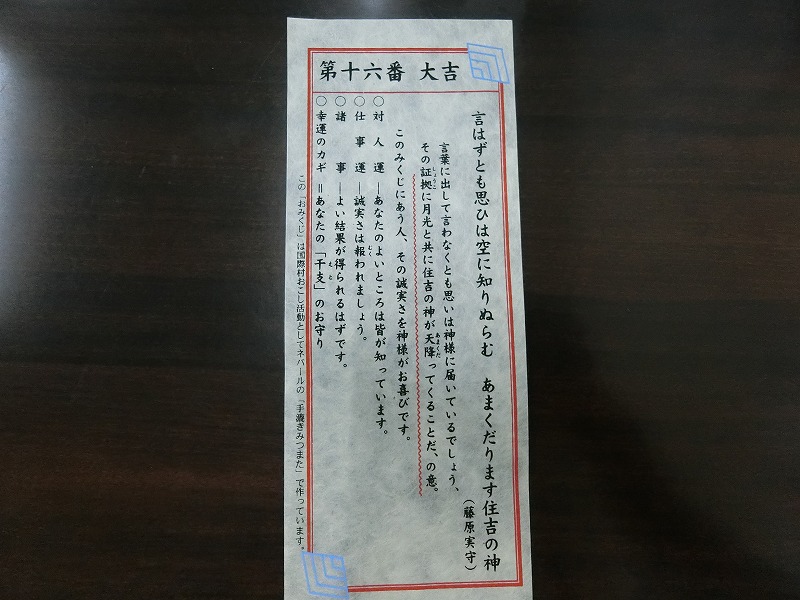 第十六番 大吉
言はずとも思ひは空に知りぬらむ あまくだります住吉の神
(藤原実守)
言葉に出して言わなくとも思いは神様に届いているでしょう、
その証拠に月光と共に住吉の神が天降ってくることだ、の意。
しょうこ
あまくだ
このみくじにあう人、その誠実さを神様がお喜びです。
○対人運―あなたのよいところは皆が知っています。
○仕事運―誠実さは報われましょう。
むく
○諸事―よい結果が得られるはずです。
○幸運のカギ=あなたの「干支」のお守り
えと
この「おみくじ」は国際村おこし活動としてネパールの「手漉きみつまた」で作っています。